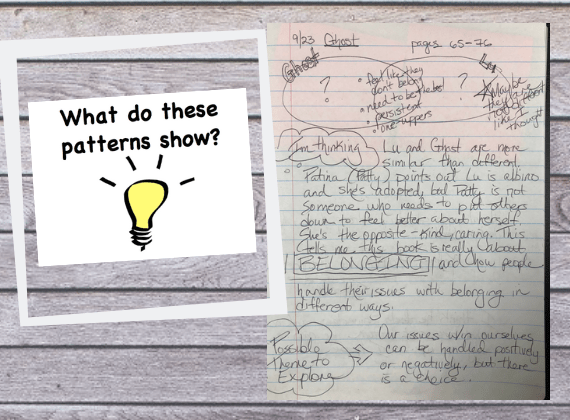 What do these
patterns show?
9/23 Ghost pages 65-76
Ghost
Lu
?
?
• feel like they
don't belong
• need to be the best
• persistent
• one-uppers
Maybe
they aren't
different
like I
thought
I'm thinking
Lu and Ghost are more
similar than different.
Patina (Patty) points out Lu is albino
and she's adopted, but Patty is not
someone who needs to put others
down to feel better about herself.
She's the opposite - kind, caring. This
tells me this book is really about
BELONGING and how people
handle their issues with belonging in
different ways.
Possible
Theme to
Explore
Our issues w/in ourselves
can be handled positively
or negatively, but there
is a choice.